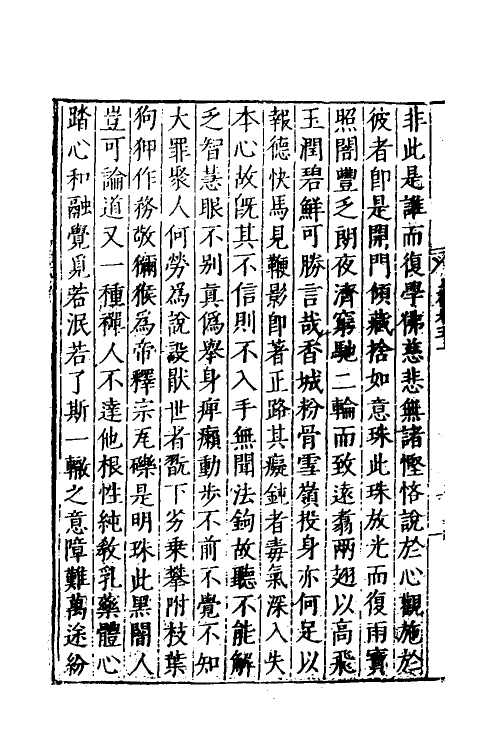 非此是誰而復學佛慈悲無諸慳悋說於心觀施於
彼者卽是開門傾藏捨如意珠此珠放光而復雨寶
照闇豐乏朗夜濟窮馳二輪而致遠翥兩翅以高飛
玉潤碧鮮可勝言哉香城粉骨雪嶺投身亦何足以
報德快馬見鞭影卽著正路其癡鈍者毒氣深入失
本心故旣其不信則不入手無聞法鉤故聽不能解
乏智慧眼不別真僞舉身痺癩動步不前不覺不知
大罪聚人何勞爲說設猒世者翫下劣乗攀附枝葉
狗狎作務敬獼猴爲帝釋宗瓦礫是明珠此黑闇人
豈可論道又一種禪人不達他根性純敎乳藥體心
踏心和融覺覓若泯若了斯一轍之意障難萬途紛